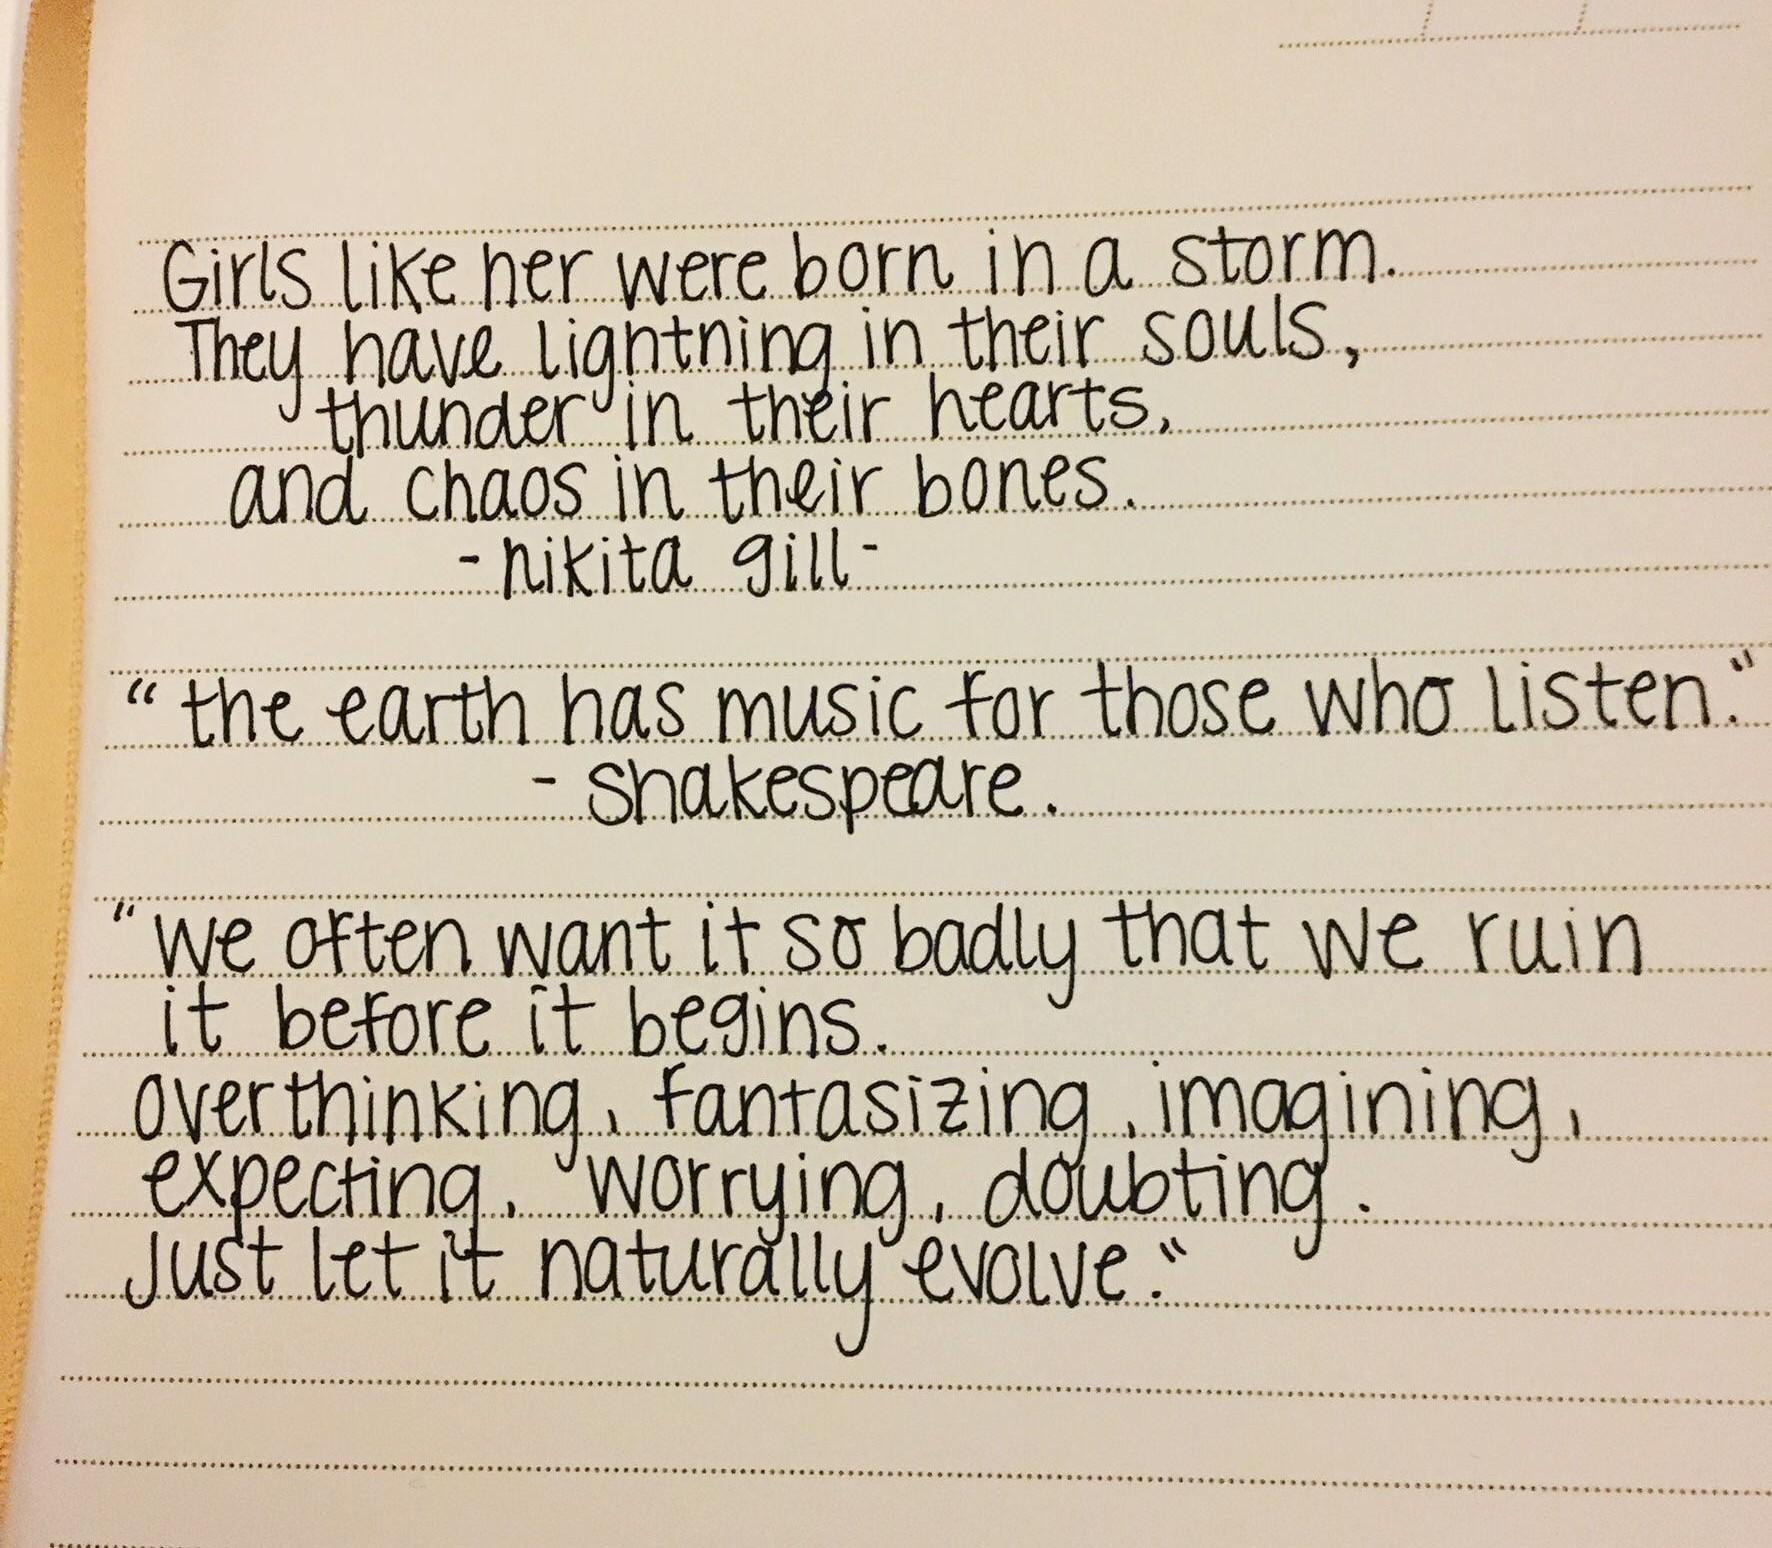 Girls like her were born in a storm.
They have lightning in their souls,
thunder in their hearts,
and chaos in their bones.
- nikita gill -
"the earth has music for those who listen."
- shakespeare.
"we often want it so badly that we ruin
it before it begins.
overthinking, fantasizing, imagining,
expecting, worrying, doubting.
Just let it naturally evolve."